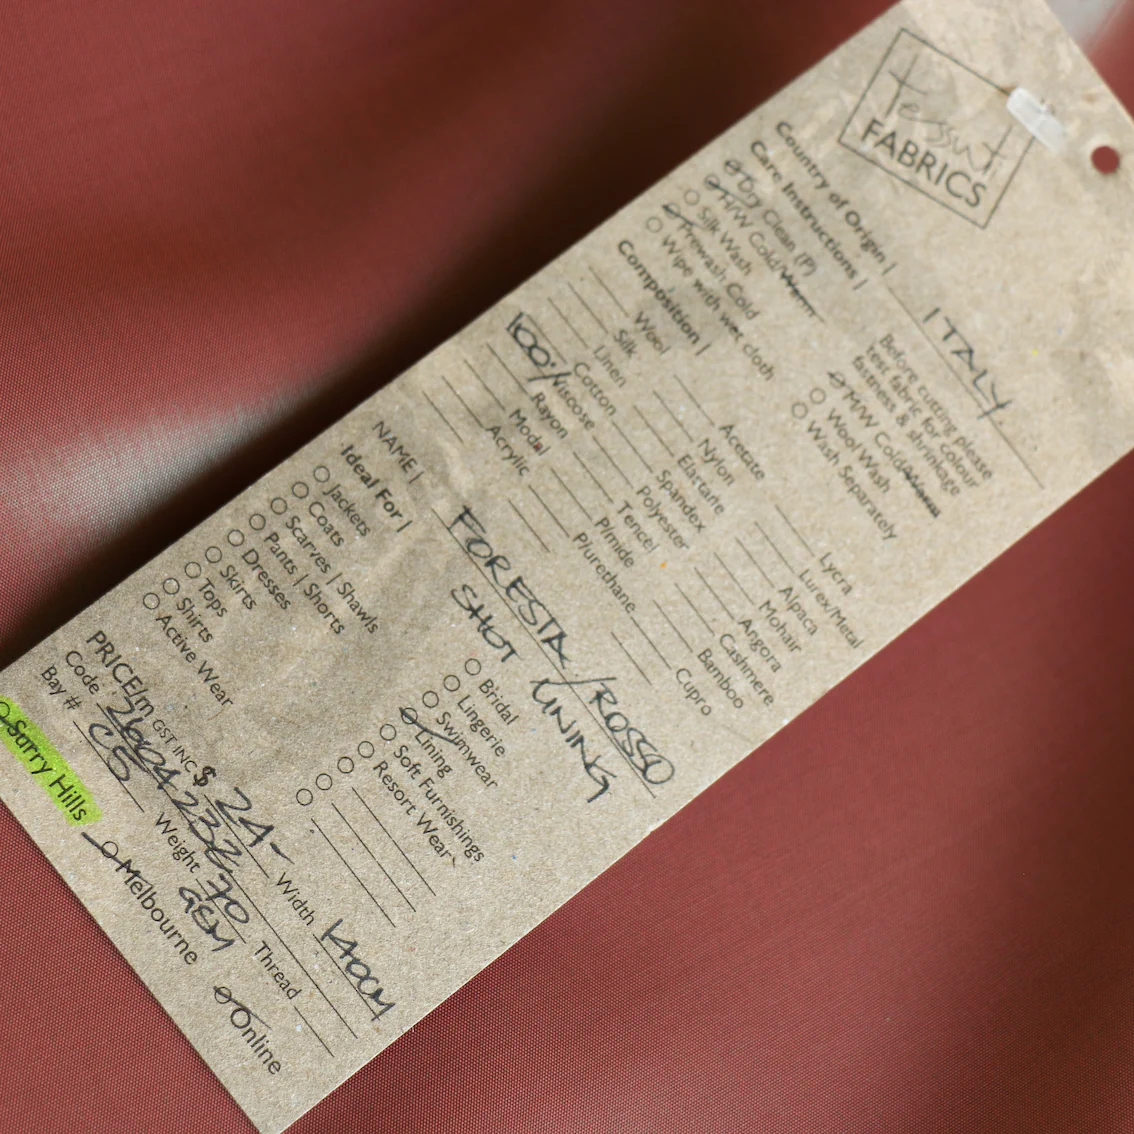 Tessuti
FABRICS
Country of Origin | ITALY
Care Instructions |
Dry Clean (P)
H/W Cold/Warm
Silk Wash
Prewash Cold
Wipe with wet cloth
Before cutting please
test fabric for colour
fastness & shrinkage
M/W Cold/Warm
Wool Wash
Wash Separately
Composition |
Wool
Silk
Linen
Cotton
100% Viscose
Rayon
Modal
Acrylic
Acetate
Nylon
Elastane
Spandex
Polyester
Tencel
P/mide
P/urethane
Lycra
Lurex/Metal
Alpaca
Mohair
Angora
Cashmere
Bamboo
Cupro
NAME | FORESTA/ROSSO
SHOT LINING
Ideal For |
Jackets
Coats
Scarves | Shawls
Pants | Shorts
Dresses
Skirts
Tops
Shirts
Active Wear
Bridal
Lingerie
Swimwear
Lining
Soft Furnishings
Resort Wear
PRICE/m GST INC $ 24- Width 140CM
Code 2604232 Weight 70 Thread
Bay # CS GSM
Surry Hills Melbourne Online